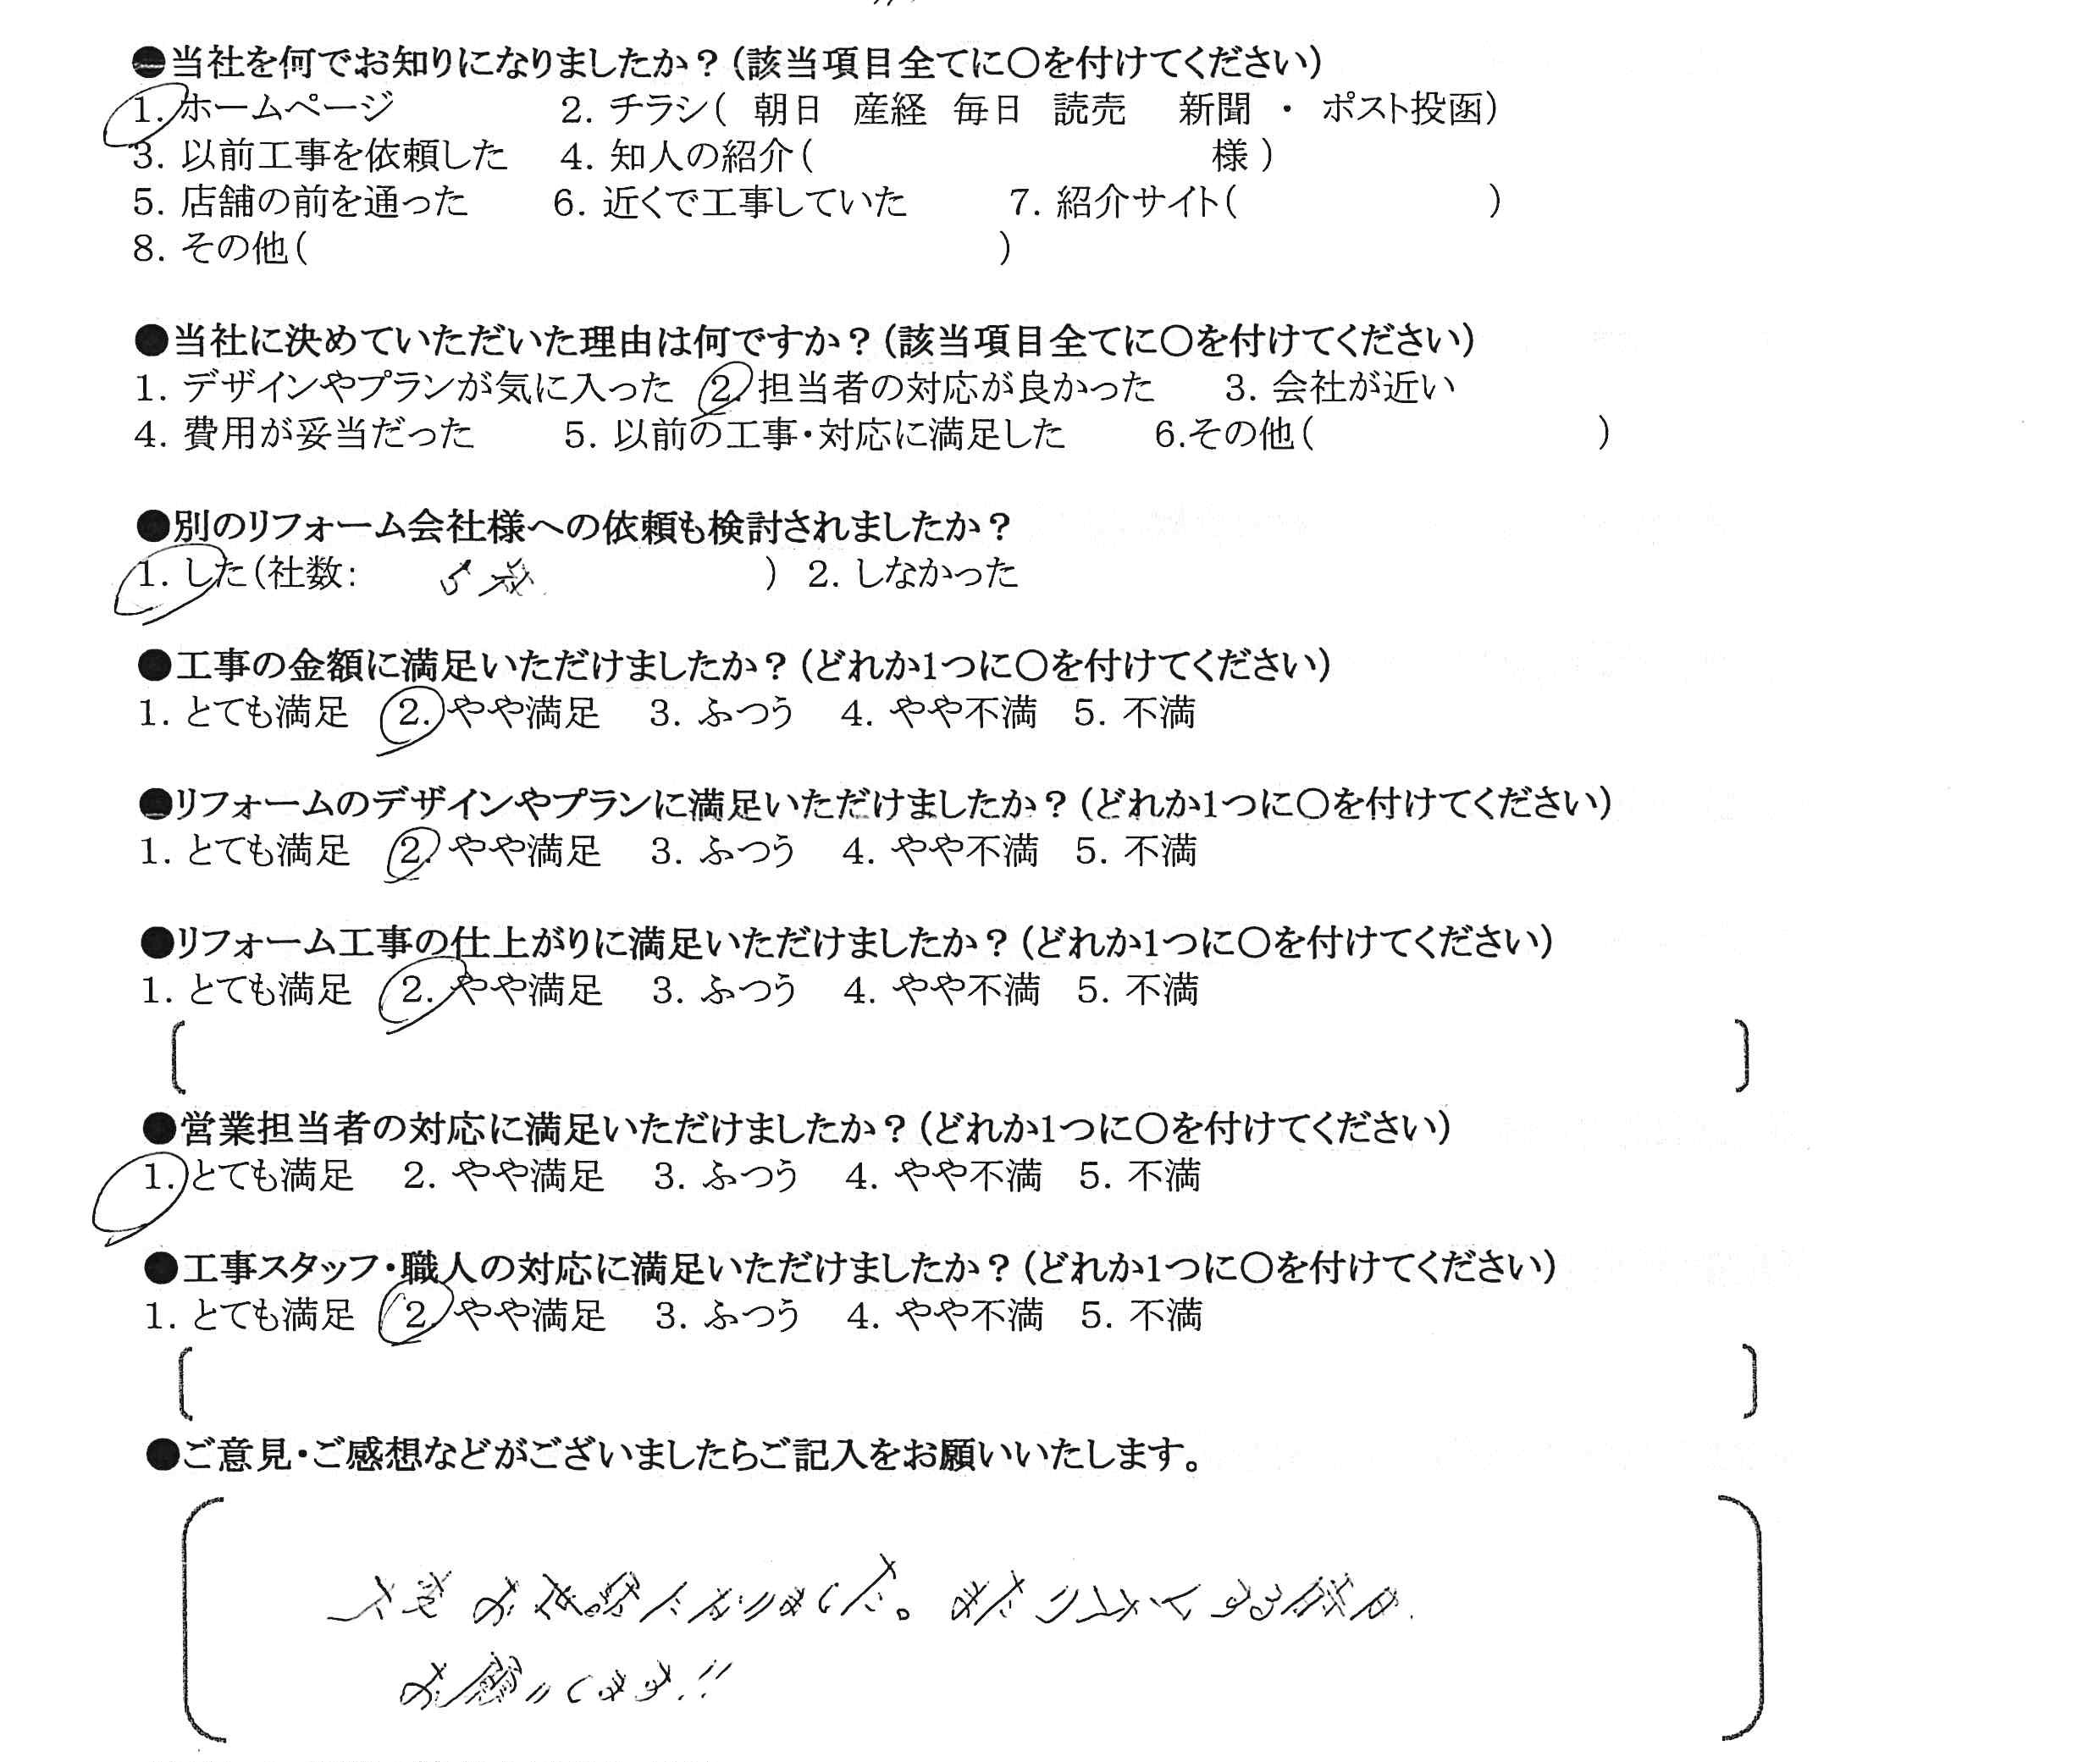 ●当社を何でお知りになりましたか？(該当項目全てに○を付けてください)
1. ホームページ 2. チラシ( 朝日 産経 毎日 読売 新聞 ・ ポスト投函)
3. 以前工事を依頼した 4. 知人の紹介( 様 )
5. 店舗の前を通った 6. 近くで工事していた 7. 紹介サイト( )
8. その他( )
●当社に決めていただいた理由は何ですか？(該当項目全てに○を付けてください)
1. デザインやプランが気に入った 2. 担当者の対応が良かった 3. 会社が近い
4. 費用が妥当だった 5. 以前の工事・対応に満足した 6.その他( )
●別のリフォーム会社様への依頼も検討されましたか？
1. した(社数: ) 2. しなかった
●工事の金額に満足いただけましたか？(どれか1つに○を付けてください)
1. とても満足 2. やや満足 3. ふつう 4. やや不満 5. 不満
●リフォームのデザインやプランに満足いただけましたか？(どれか1つに○を付けてください)
1. とても満足 2. やや満足 3. ふつう 4. やや不満 5. 不満
●リフォーム工事の仕上がりに満足いただけましたか？(どれか1つに○を付けてください)
1. とても満足 2. やや満足 3. ふつう 4. やや不満 5. 不満
●営業担当者の対応に満足いただけましたか？(どれか1つに○を付けてください)
1. とても満足 2. やや満足 3. ふつう 4. やや不満 5. 不満
●工事スタッフ・職人の対応に満足いただけましたか？(どれか1つに○を付けてください)
1. とても満足 2. やや満足 3. ふつう 4. やや不満 5. 不満
●ご意見・ご感想などがございましたらご記入をお願いいたします。
大変お世話になりました。またリフォームする時は
お願いします!!